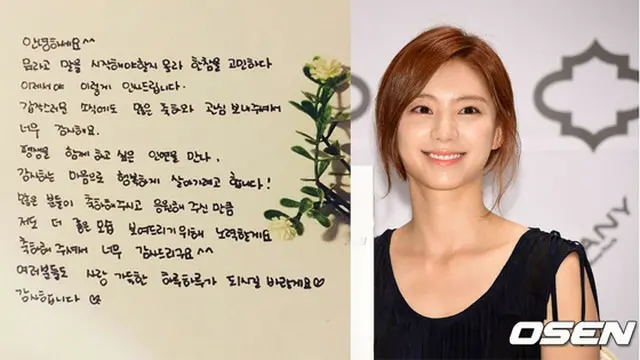 안녕하세요^^
뭐라고 말을 시작해야할지 몰라 한참을 고민하다
이제서야 이렇게 인사드립니다.
갑작스러운 소식에도 많은 축하와 관심 보내주셔서
너무 감사해요.
평생을 함께 하고 싶은 인연을 만나,
감사하는 마음으로 행복하게 살아가려고 합니다!
많은 분들이 축하해주시고 응원해 주신 만큼
저도 더 좋은 모습 보여드리기위해 노력할게요
축하해 주셔서 너무 감사드리구요^^
여러분들도 사랑 가득한 하루하루가 되시길 바랄게요♡
감사합니다 ♡
ANY
OSEN